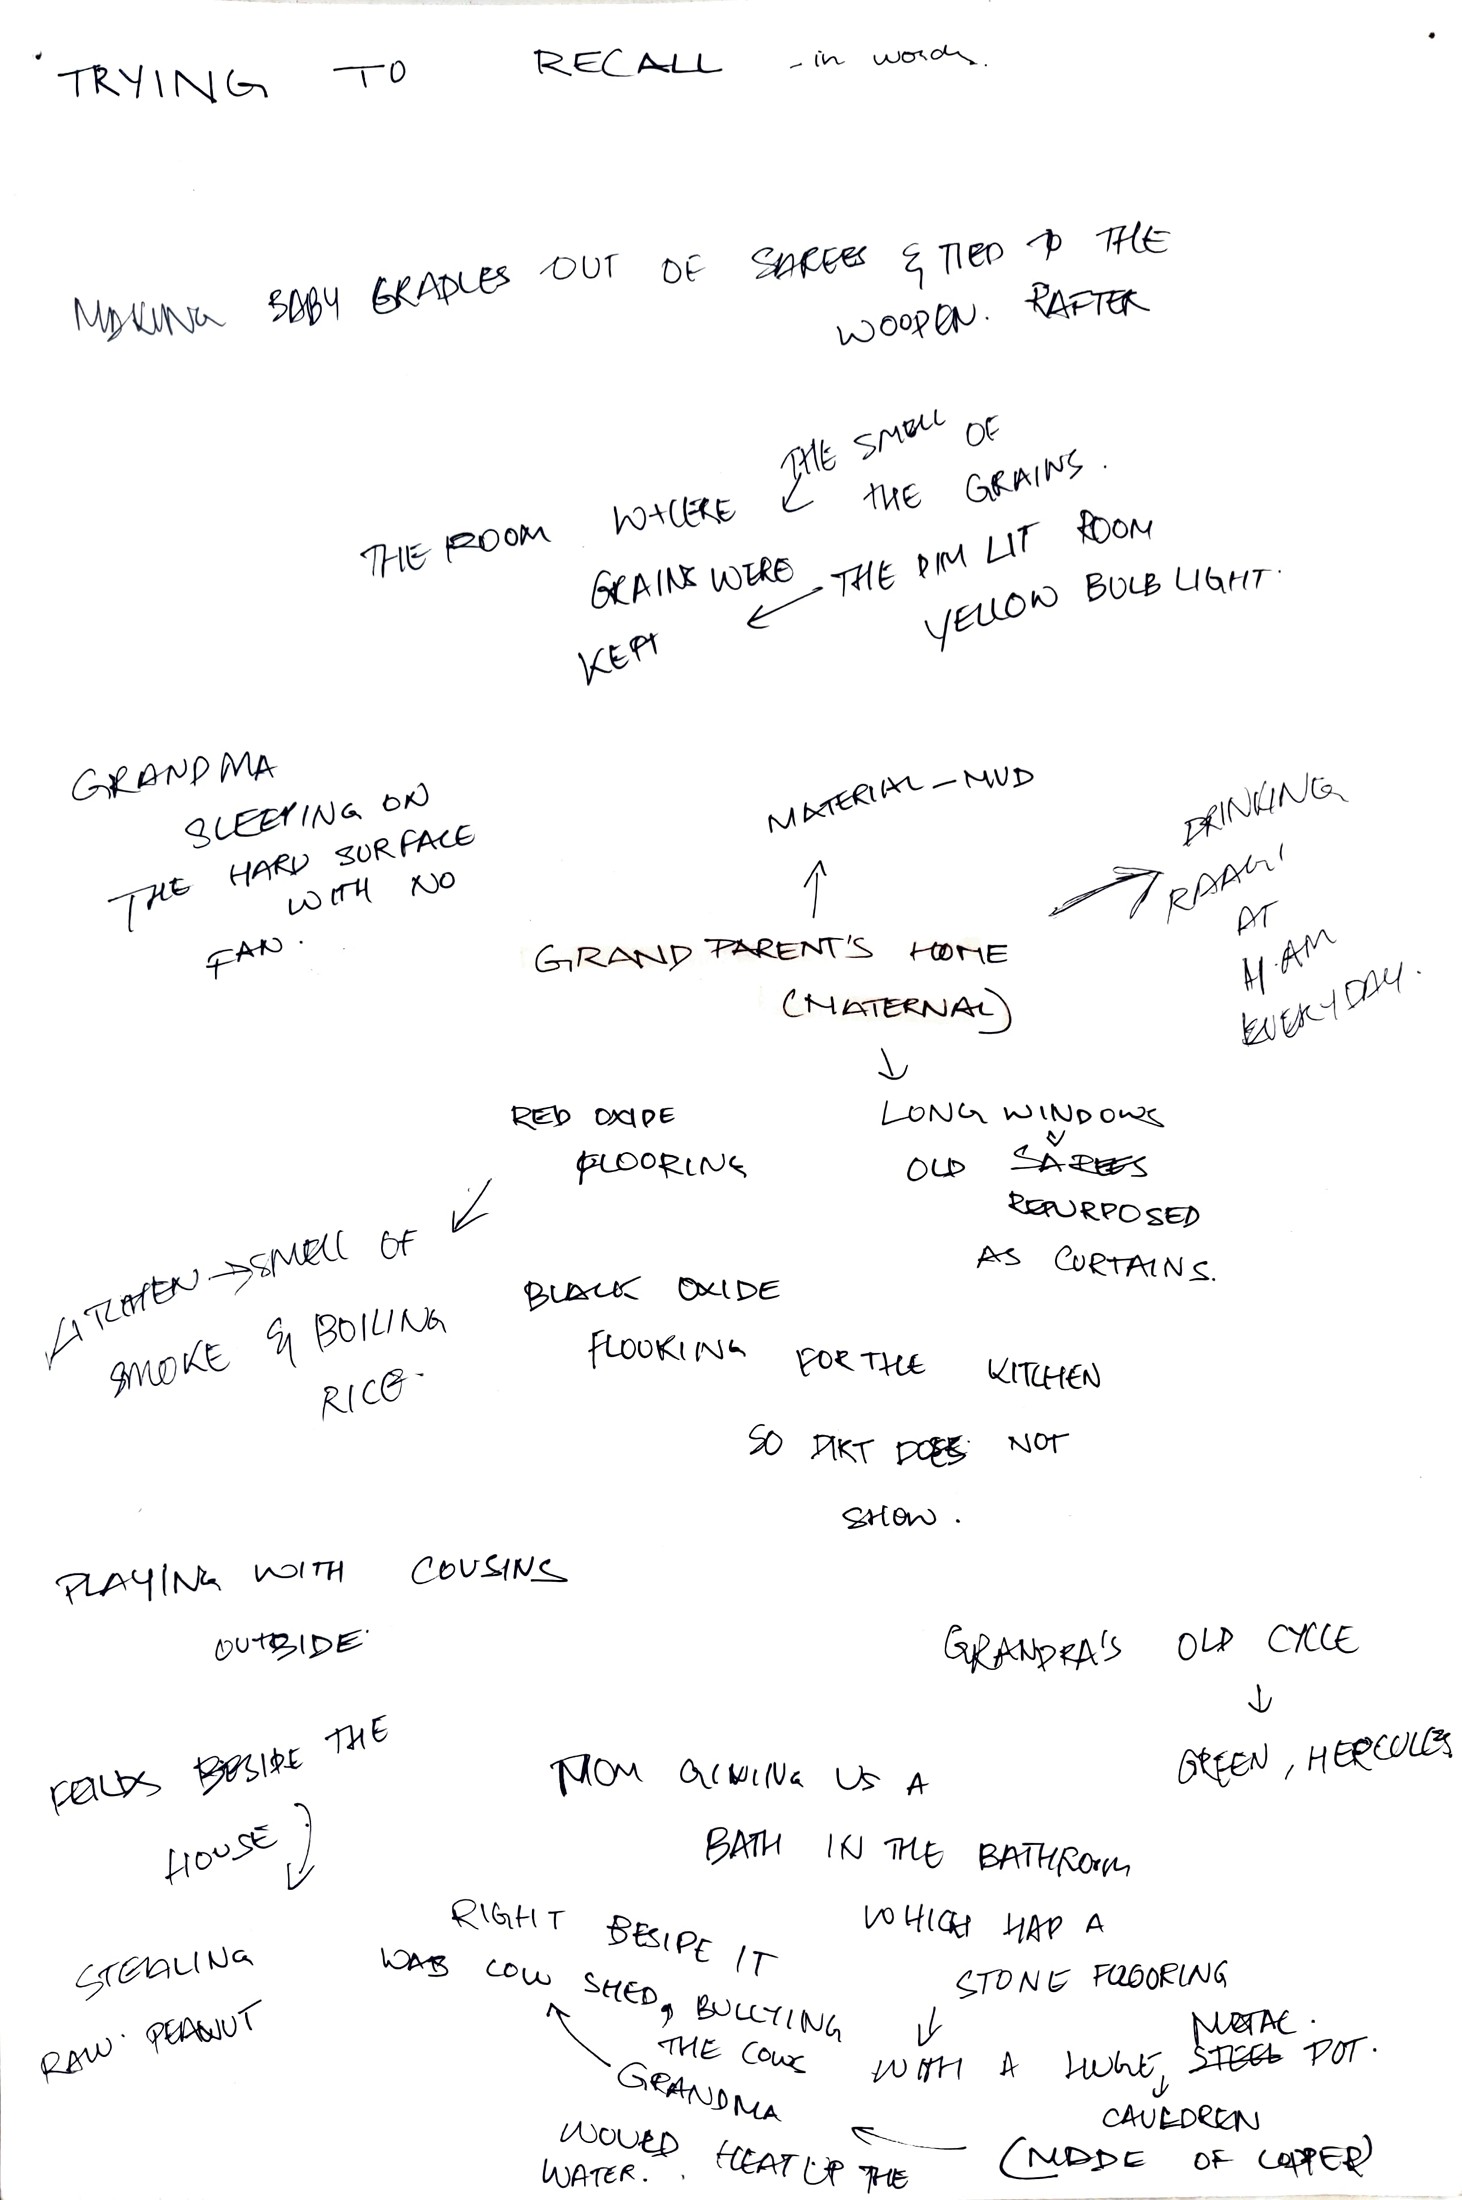 TRYING TO RECALL - in words.
MAKING BABY CRADLES OUT OF SAREES & TIED TO THE
WOODEN. RAFTER
THE SMELL OF
THE GRAINS.
THE ROOM WHERE
GRAINS WERE
KEPT
THE DIM LIT ROOM
YELLOW BULB LIGHT.
GRANDMA
SLEEPING ON
THE HARD SURFACE
WITH NO
FAN.
MATERIAL - MUD
DRINKING
RAAGI
AT
11.AM
EVERYDAY.
GRAND PARENT'S HOME
(MATERNAL)
RED OXIDE
FLOORING
LONG WINDOWS
OLD SAREES
REPURPOSED
AS CURTAINS.
KITCHEN → SMELL OF
SMOKE & BOILING
RICE.
BLACK OXIDE
FLOORING FOR THE KITCHEN
SO DIRT DOES NOT
SHOW.
PLAYING WITH COUSINS
OUTSIDE.
GRANDPA'S OLD CYCLE
GREEN, HERCULES
FEILDS BESIDE THE
HOUSE
STEALING
RAW PEANUT
MOM GIVING US A
BATH IN THE BATHROOM
WHICH HAD A
STONE FLOORING
WITH A HUGE, STEEL POT.
METAL.
CAULDREN
(MADE OF COPPER)
GRANDMA
WOULD HEAT UP THE
WATER.
RIGHT BESIDE IT
WAS COW SHED, BULLYING
THE COWS